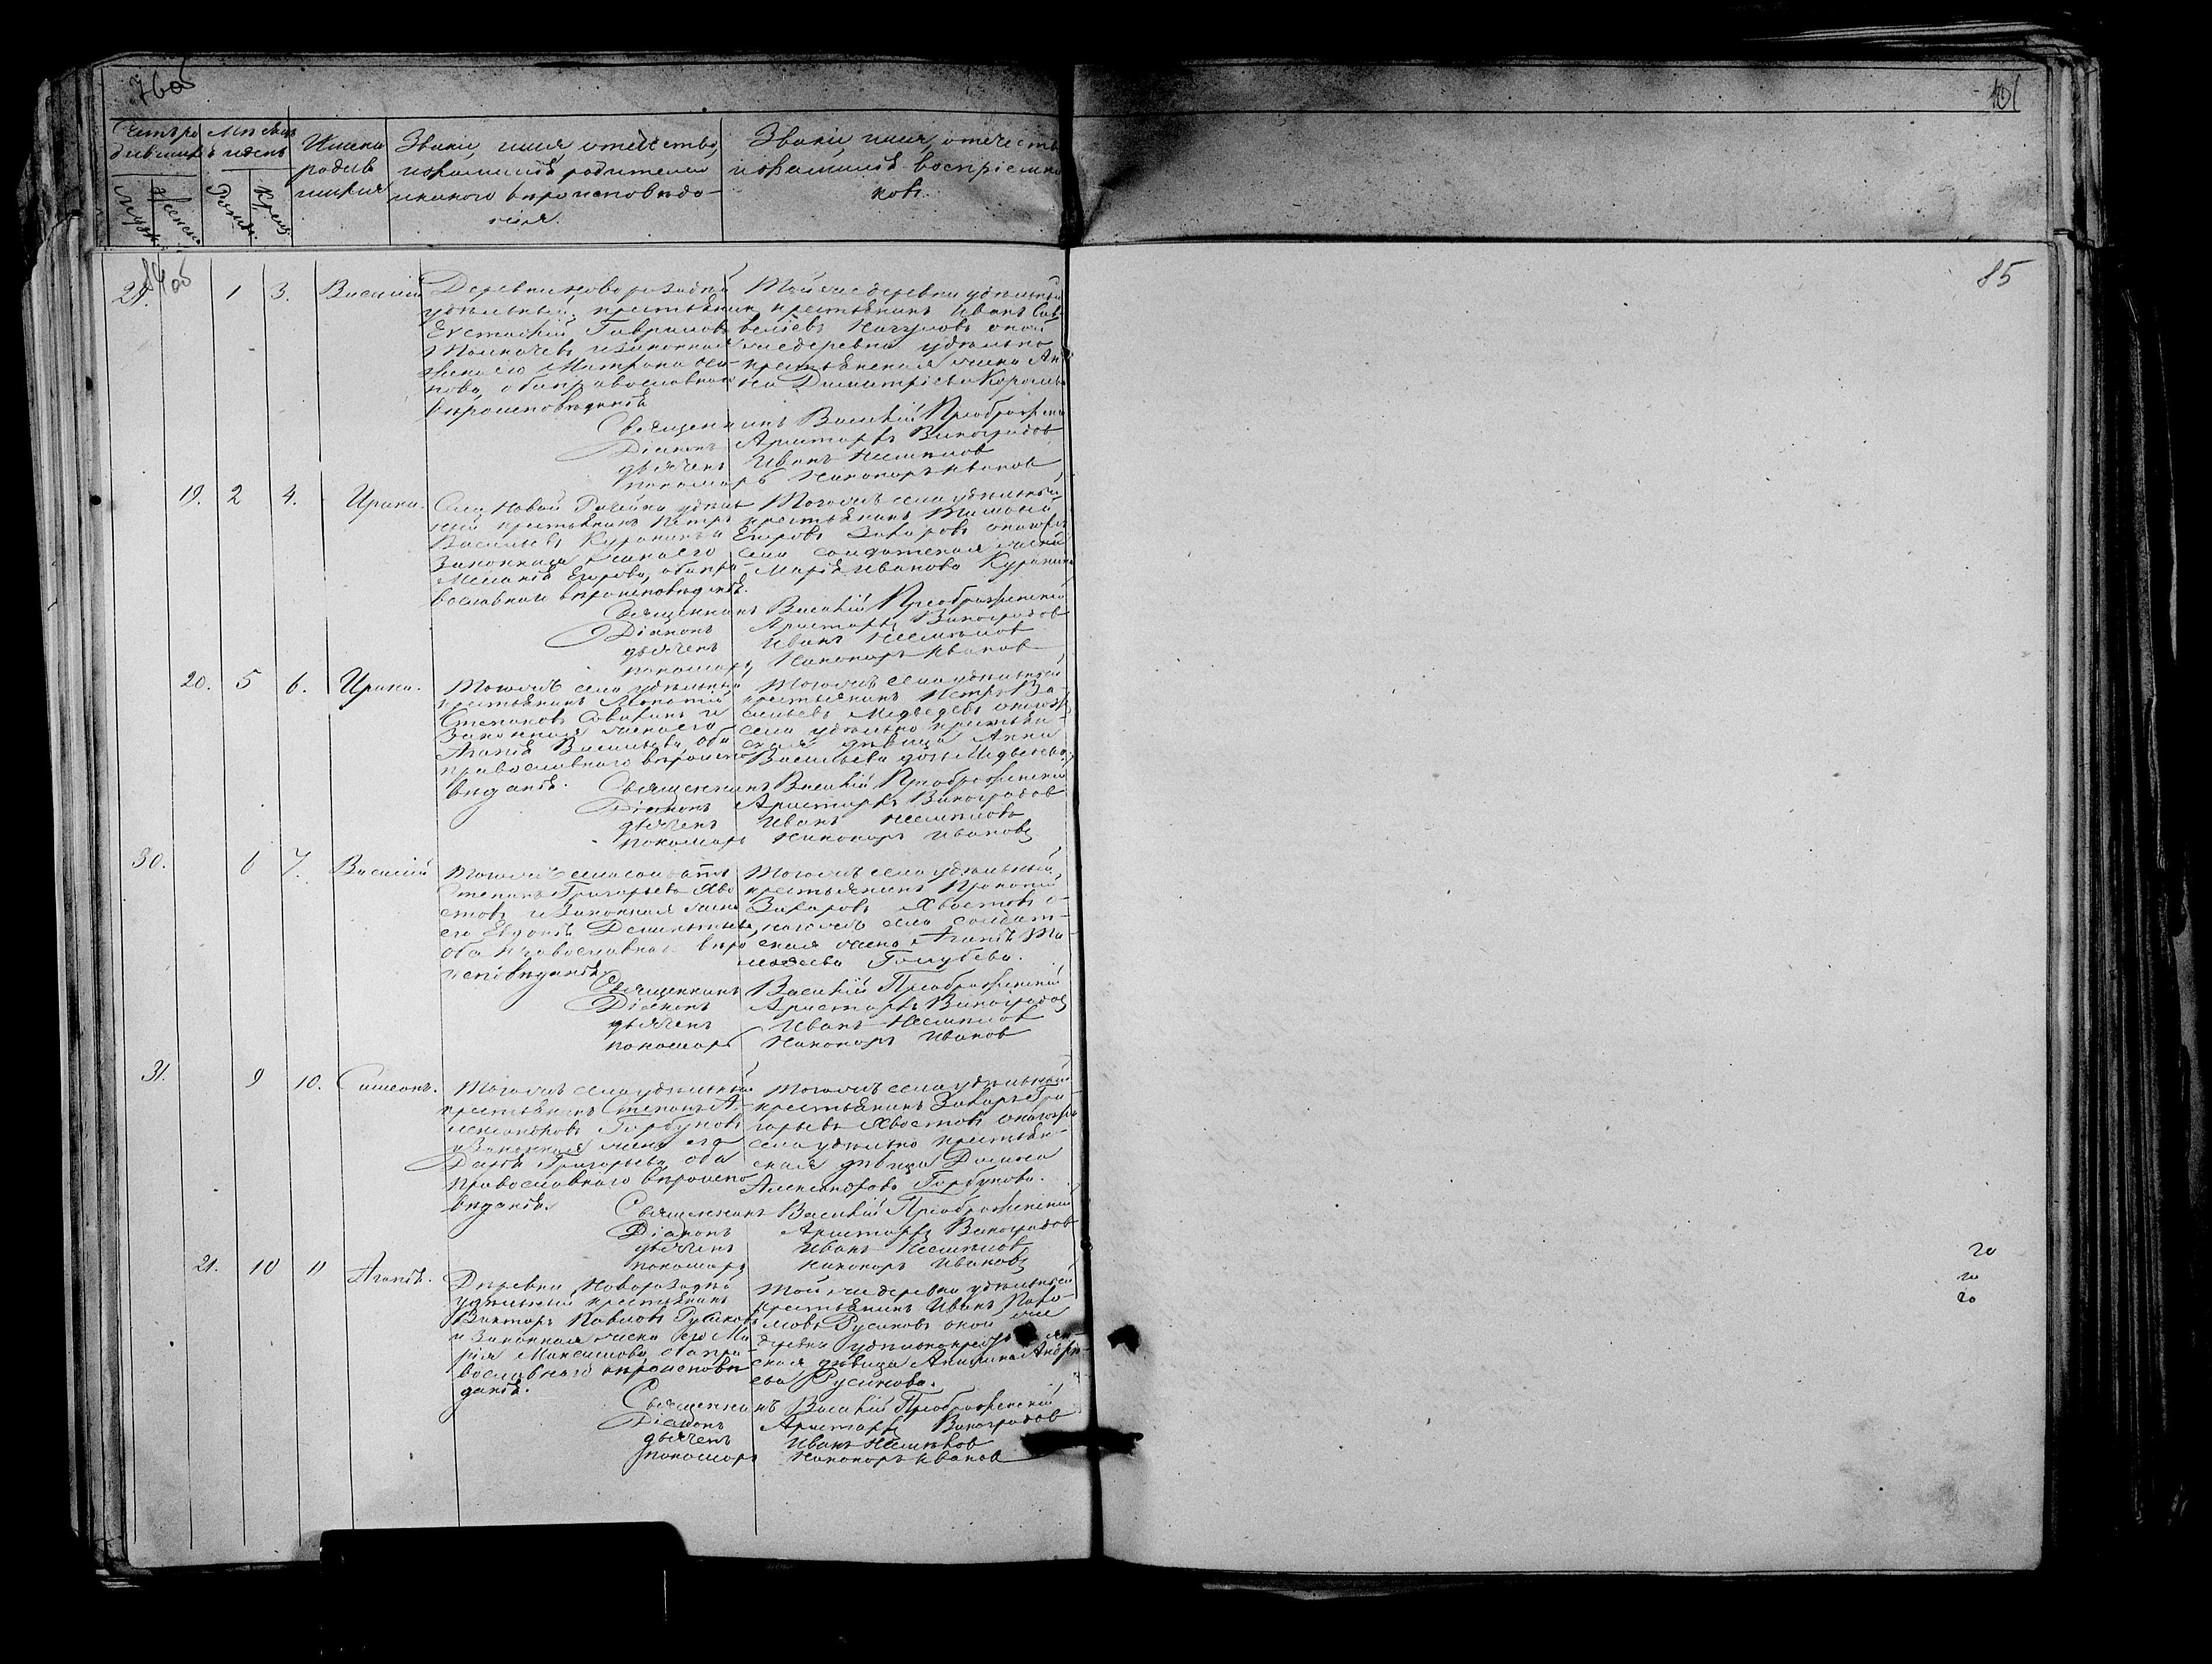 76об
101
Счетъ ро
дившихъ
Муж.
Женск.
Мѣсяцъ
и день
Рожд.
Крещ.
Имена
родив
шихся
Званіе, имя, отечество,
и фамилія родителей
и какого вѣроисповѣда-
нія.
Званіе, имя, отечеств
и фамилія воспріемни
ковъ.
84об
85
29. 1 3. Василій
Деревни Новоразадной
удѣльный крестьянинъ
Евстафій Гавриловъ
Толкачевъ и законная
жена его Матрона Оси-
пова, оба православнаго
вѣроисповѣданія
Той же деревни удѣльный
крестьянинъ Иванъ Сав
вельевъ оной
же деревни удѣльно
крестьянская жена Ан
на Димитріева
Священникъ Василій Преображенскій
Діаконъ Аристархъ Виноградов
дьячекъ Иванъ
пономарь Никоноръ Иванов
19. 2 4. Ирина.
Села Новой Рачейки удѣль
ный крестьянинъ Петръ
Васильевъ Куракинъ и
Законная жена его
Меланія Егорова, оба пра-
вославнаго вѣроисповѣданія.
Тогожъ села удѣльный
крестьянинъ
Егоровъ Захаровъ оногожъ
села солдатская жена
Марія Иванова Куракина
Священникъ Василій Преображенскій
Діаконъ Аристархъ Виноградов
дьячекъ Иванъ
пономарь Никоноръ Иванов
20. 5 6. Ирина.
Тогожъ села удѣльный
крестьянинъ
Степановъ Савинъ и
Законная жена его
Агафія Васильева, оба
православнаго вѣроиспо
вѣданія.
Тогожъ села удѣльный
крестьянинъ Петръ Ва-
сильевъ Медведевъ оногожъ
села удѣльно крестьян-
ская дѣвица Анна
Васильева дочь Медведева
Священникъ Василій Преображенскій
Діаконъ Аристархъ Виноградов
дьячекъ Иванъ
пономарь Никоноръ Ивановъ
30. 6 7. Василій
Тогожъ села солдатъ
Степанъ Григорьевъ Хво
стовъ и Законная жена
его Евдокія Дементьева,
оба православнаго вѣро
исповѣданія
Тогожъ села удѣльный
крестьянинъ Прокопій
Захаровъ Хвостовъ о-
ногожъ села солдат-
ская жена Агафія
Голубева.
Священникъ Василій Преображенскій
Діаконъ Аристархъ Виноградов
дьячекъ Иванъ
пономарь Никоноръ Иванов
31. 9 10. Симеонъ.
Тогожъ села удѣльный
крестьянинъ Степанъ А-
лександровъ Горбуновъ
и Законная жена его
Дарія Григорьева, оба
православнаго вѣроиспо
вѣданія.
Тогожъ села удѣльный
крестьянинъ Захаръ Гри
горьевъ Хвостовъ оногожъ
села удѣльно крестьян-
ская дѣвица
Александрова Горбунова.
Священникъ Василій Преображенскій
Діаконъ Аристархъ Виноградов
дьячекъ Иванъ
пономарь Никоноръ Ивановъ
21. 10 11 Агафія.
Деревни Новоразадной
удѣльный крестьянинъ
Викторъ Павловъ Русяковъ
и Законная жена его Ма
рія Максимова, оба пра
вославнаго вѣроисповѣ
данія.
Той же деревни удѣльный
крестьянинъ Иванъ
Русяковъ оной же
деревни удѣльно крестьян
ская дѣвица Акилина Андре-
ева Русякова.
Священникъ Василій Преображенскій
Діаконъ Аристархъ Виноградов
дьячекъ Иванъ
пономарь Никоноръ Иванов
20
20
20